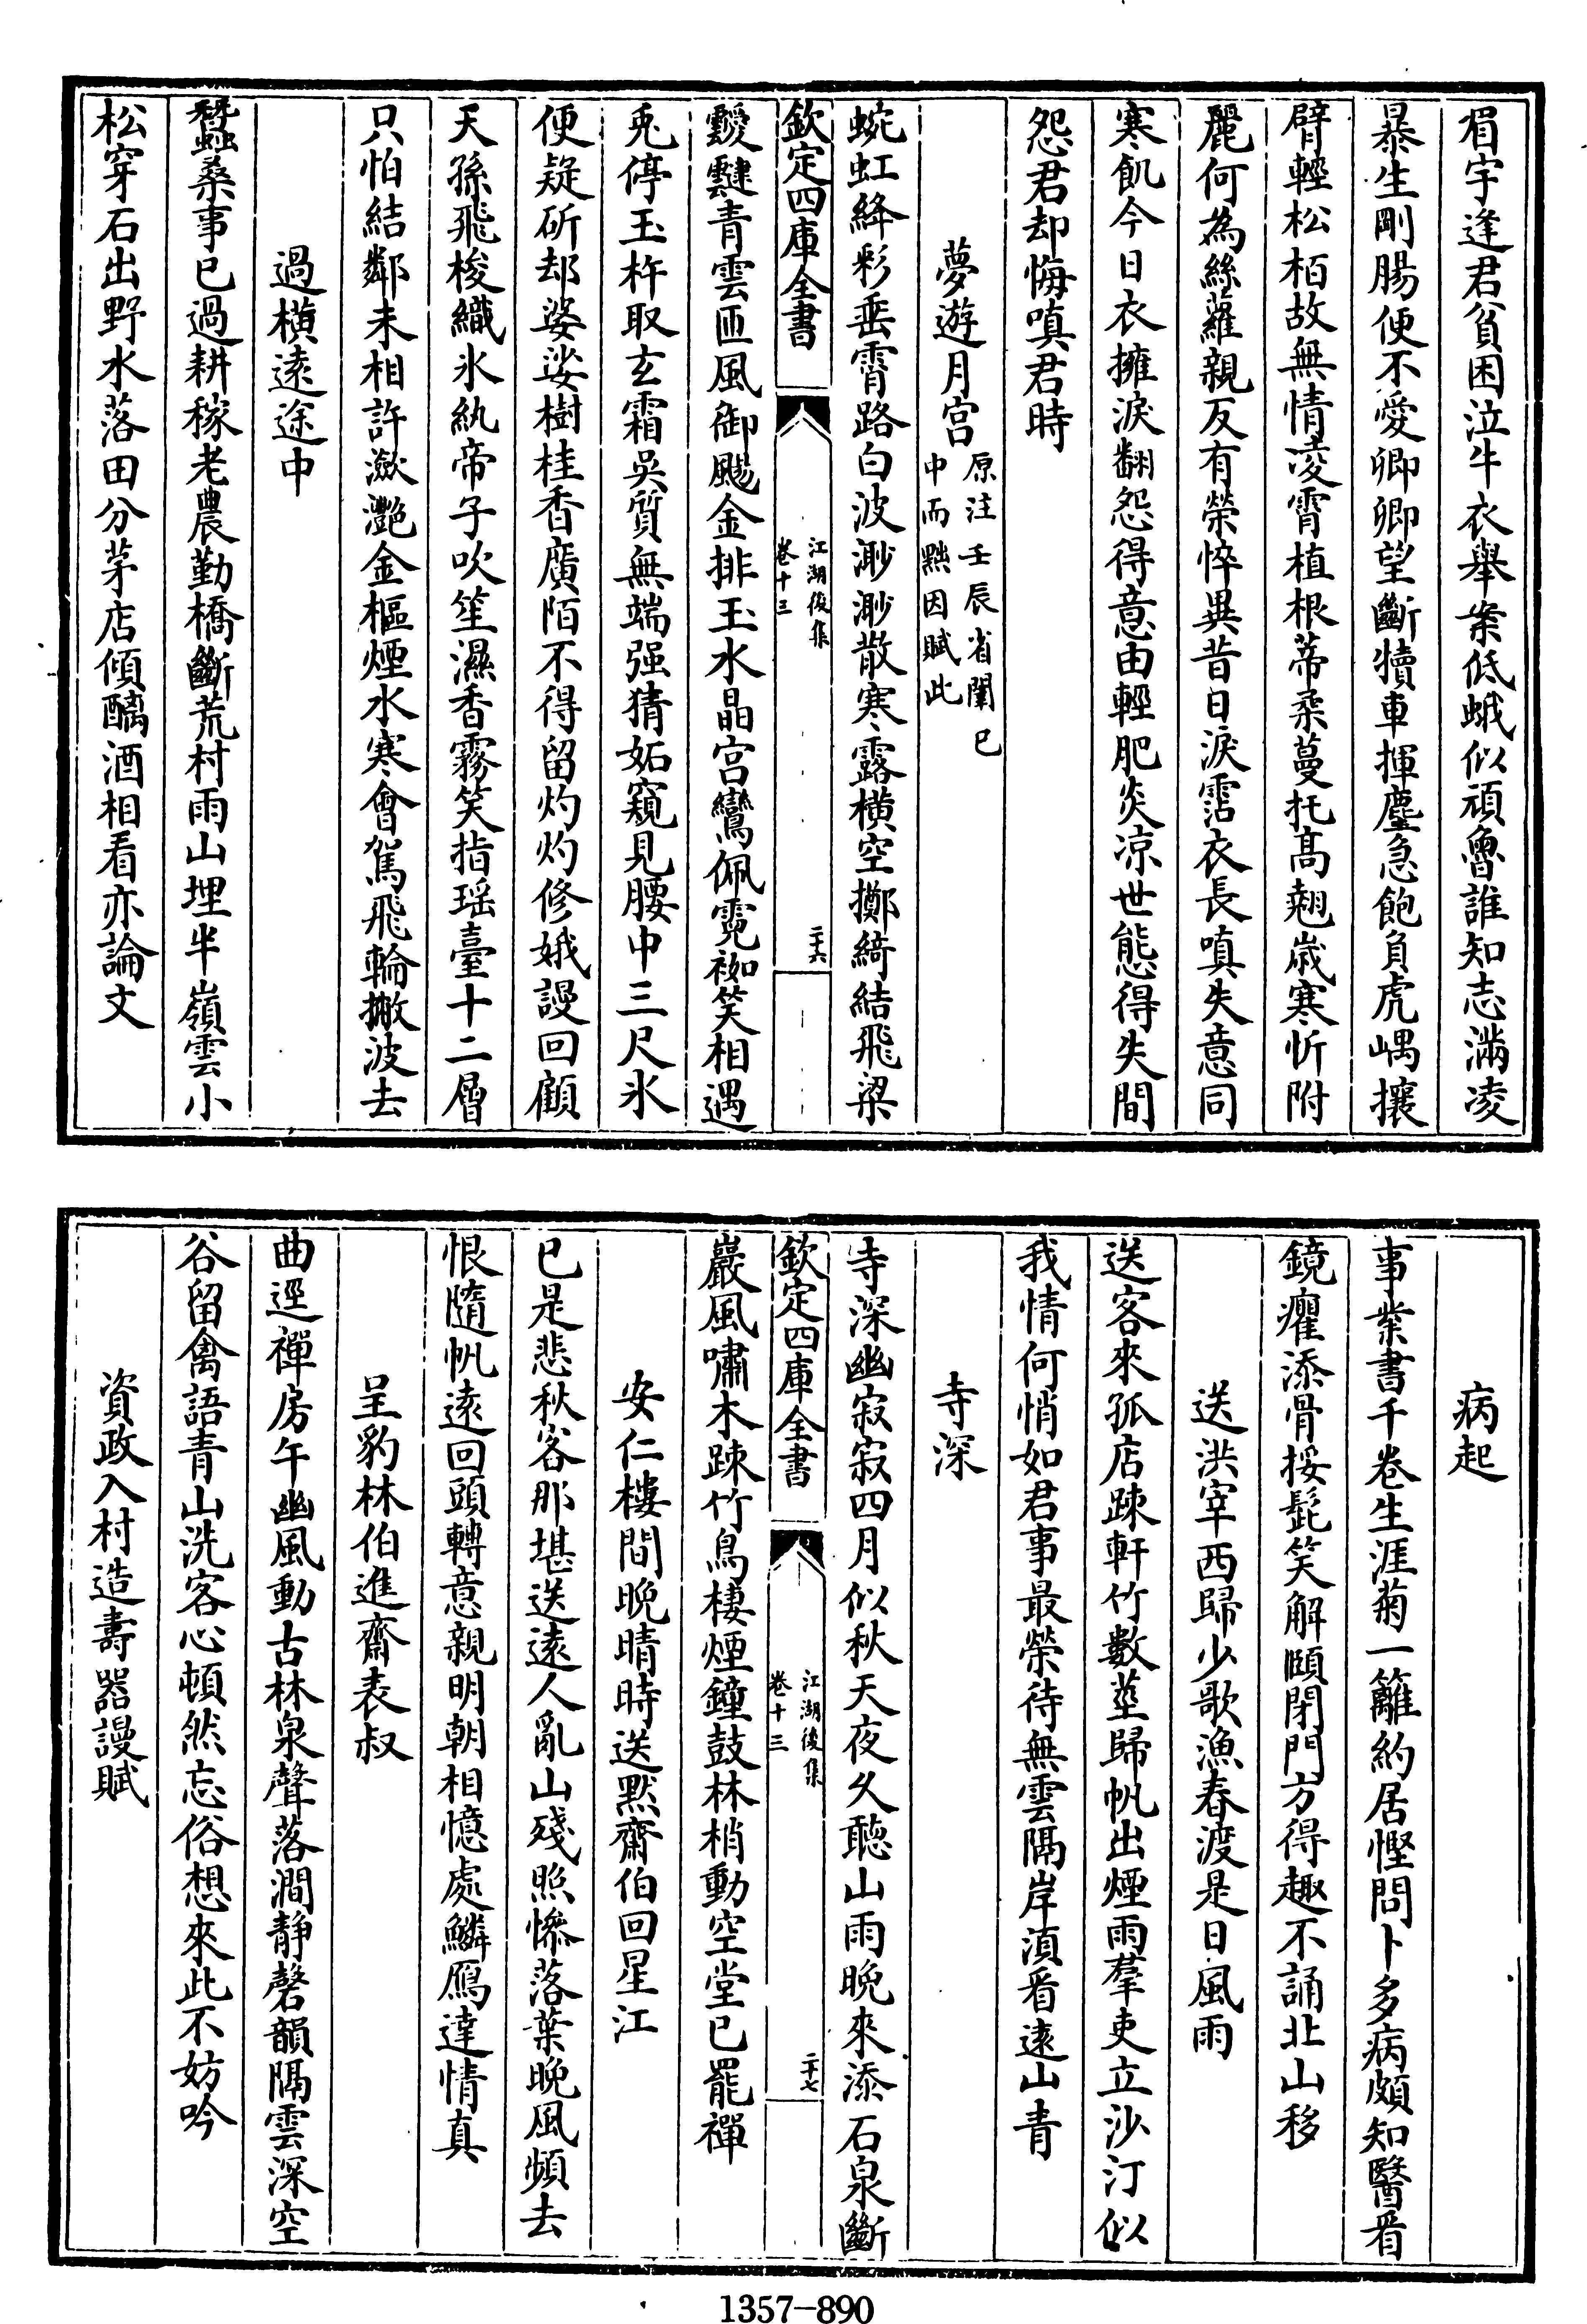 眉宇逢君貧困泣牛衣舉案低蛾似頑魯誰知志滿凌
暴生剛腸便不愛卿卿望斷犢車揮麈急飽負虎嵎攘
臂輕松栢故無情凌霄植根蒂柔蔓托髙翹歳寒忻附
麗何為絲蘿親反有榮悴異昔日淚霑衣長嗔失意同
寒飢今日衣擁淚翻怨得意由輕肥炎凉世態得失間
怨君却悔嗔君時
夢遊月宮
原注壬辰省闈已
中而黜因賦此
蜿虹絳彩垂霄路白波渺渺散寒露橫空擲綺結飛梁
欽定四庫全書
江湖後集
卷十三
二十六
靉靆青雲匝風御颺金排玉水晶宮鸞佩霓裯笑相遇
兎停玉杵取玄霜吳質無端强猜妬窺見腰中三尺氷
便疑斫却娑娑樹桂香廣陌不得留灼灼修娥謾回顧
天孫飛梭織氷紈帝子吹笙濕香霧笑指瑶臺十二層
只怕結鄰未相許瀲灩金樞煙水寒會駕飛輪撇波去
過橫遠途中
蠶桑事已過耕稼老農勤橋斷荒村雨山埋半嶺雲小
松穿石出野水落田分茅店傾醨酒相看亦論文
病起
事業書千卷生涯菊一籬約居慳問卜多病頗知醫看
鏡癯添骨挼髭笑解頤閉門方得趣不誦北山移
送洪宰西歸少歌漁春渡是日風雨
送客來孤店踈軒竹數莖歸帆出煙雨羣吏立沙汀似
我情何悄如君事最榮待無雲隔岸湏看遠山青
寺深
寺深幽寂寂四月似秋天夜久聴山雨晚來添石泉斷
欽定四庫全書
江湖後集
卷十三
二十七
巖風嘯木踈竹鳥棲煙鐘鼓林梢動空堂已罷禪
安仁樓間晚晴時送黙齋伯回星江
已是悲秋客那堪送遠人亂山殘照慘落葉晚風頻去
恨隨帆遠回頭轉意親明朝相憶處鱗鴈達情真
呈豹林伯進齋表叔
曲逕禪房午幽風動古林泉聲落澗靜磬韻隔雲深空
谷留禽語青山洗客心頓然忘俗想來此不妨吟
資政入村造壽器謾賦
1357-890